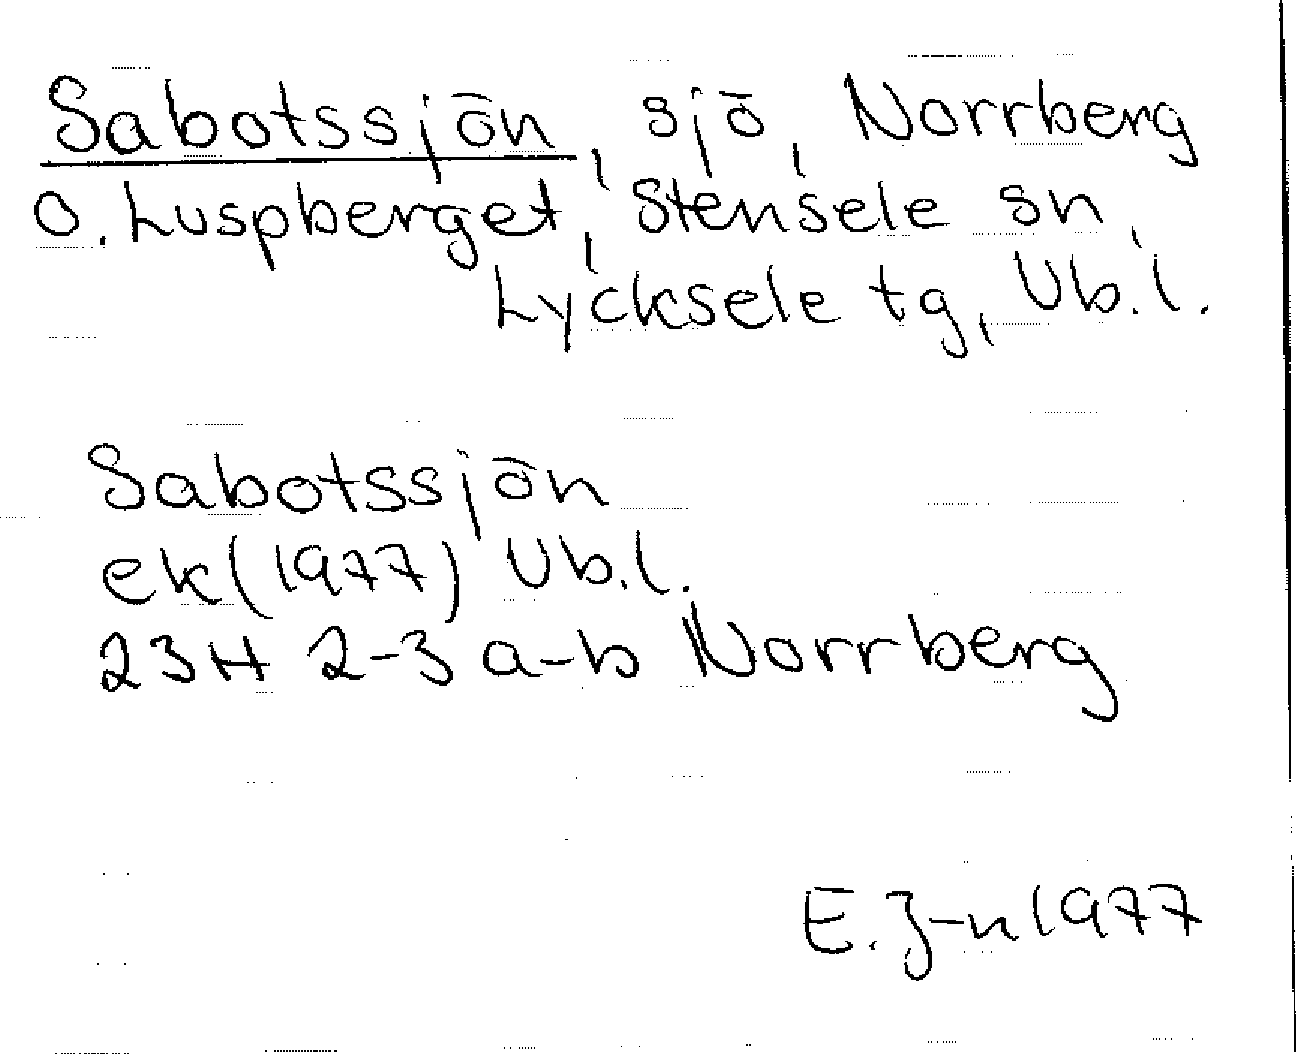 Sabotssjön, sjö, Norrberg
o. Luspberget, Stensele sn,
Lycksele tg, Vb.l.
Sabotssjön
ek(1977) Vb.l.
23H 2-3 a-b Norrberg
E. J-n 1977